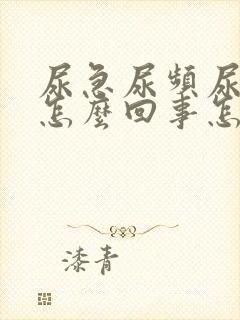 尿急尿頻尿
怎麼回事怎
漆青